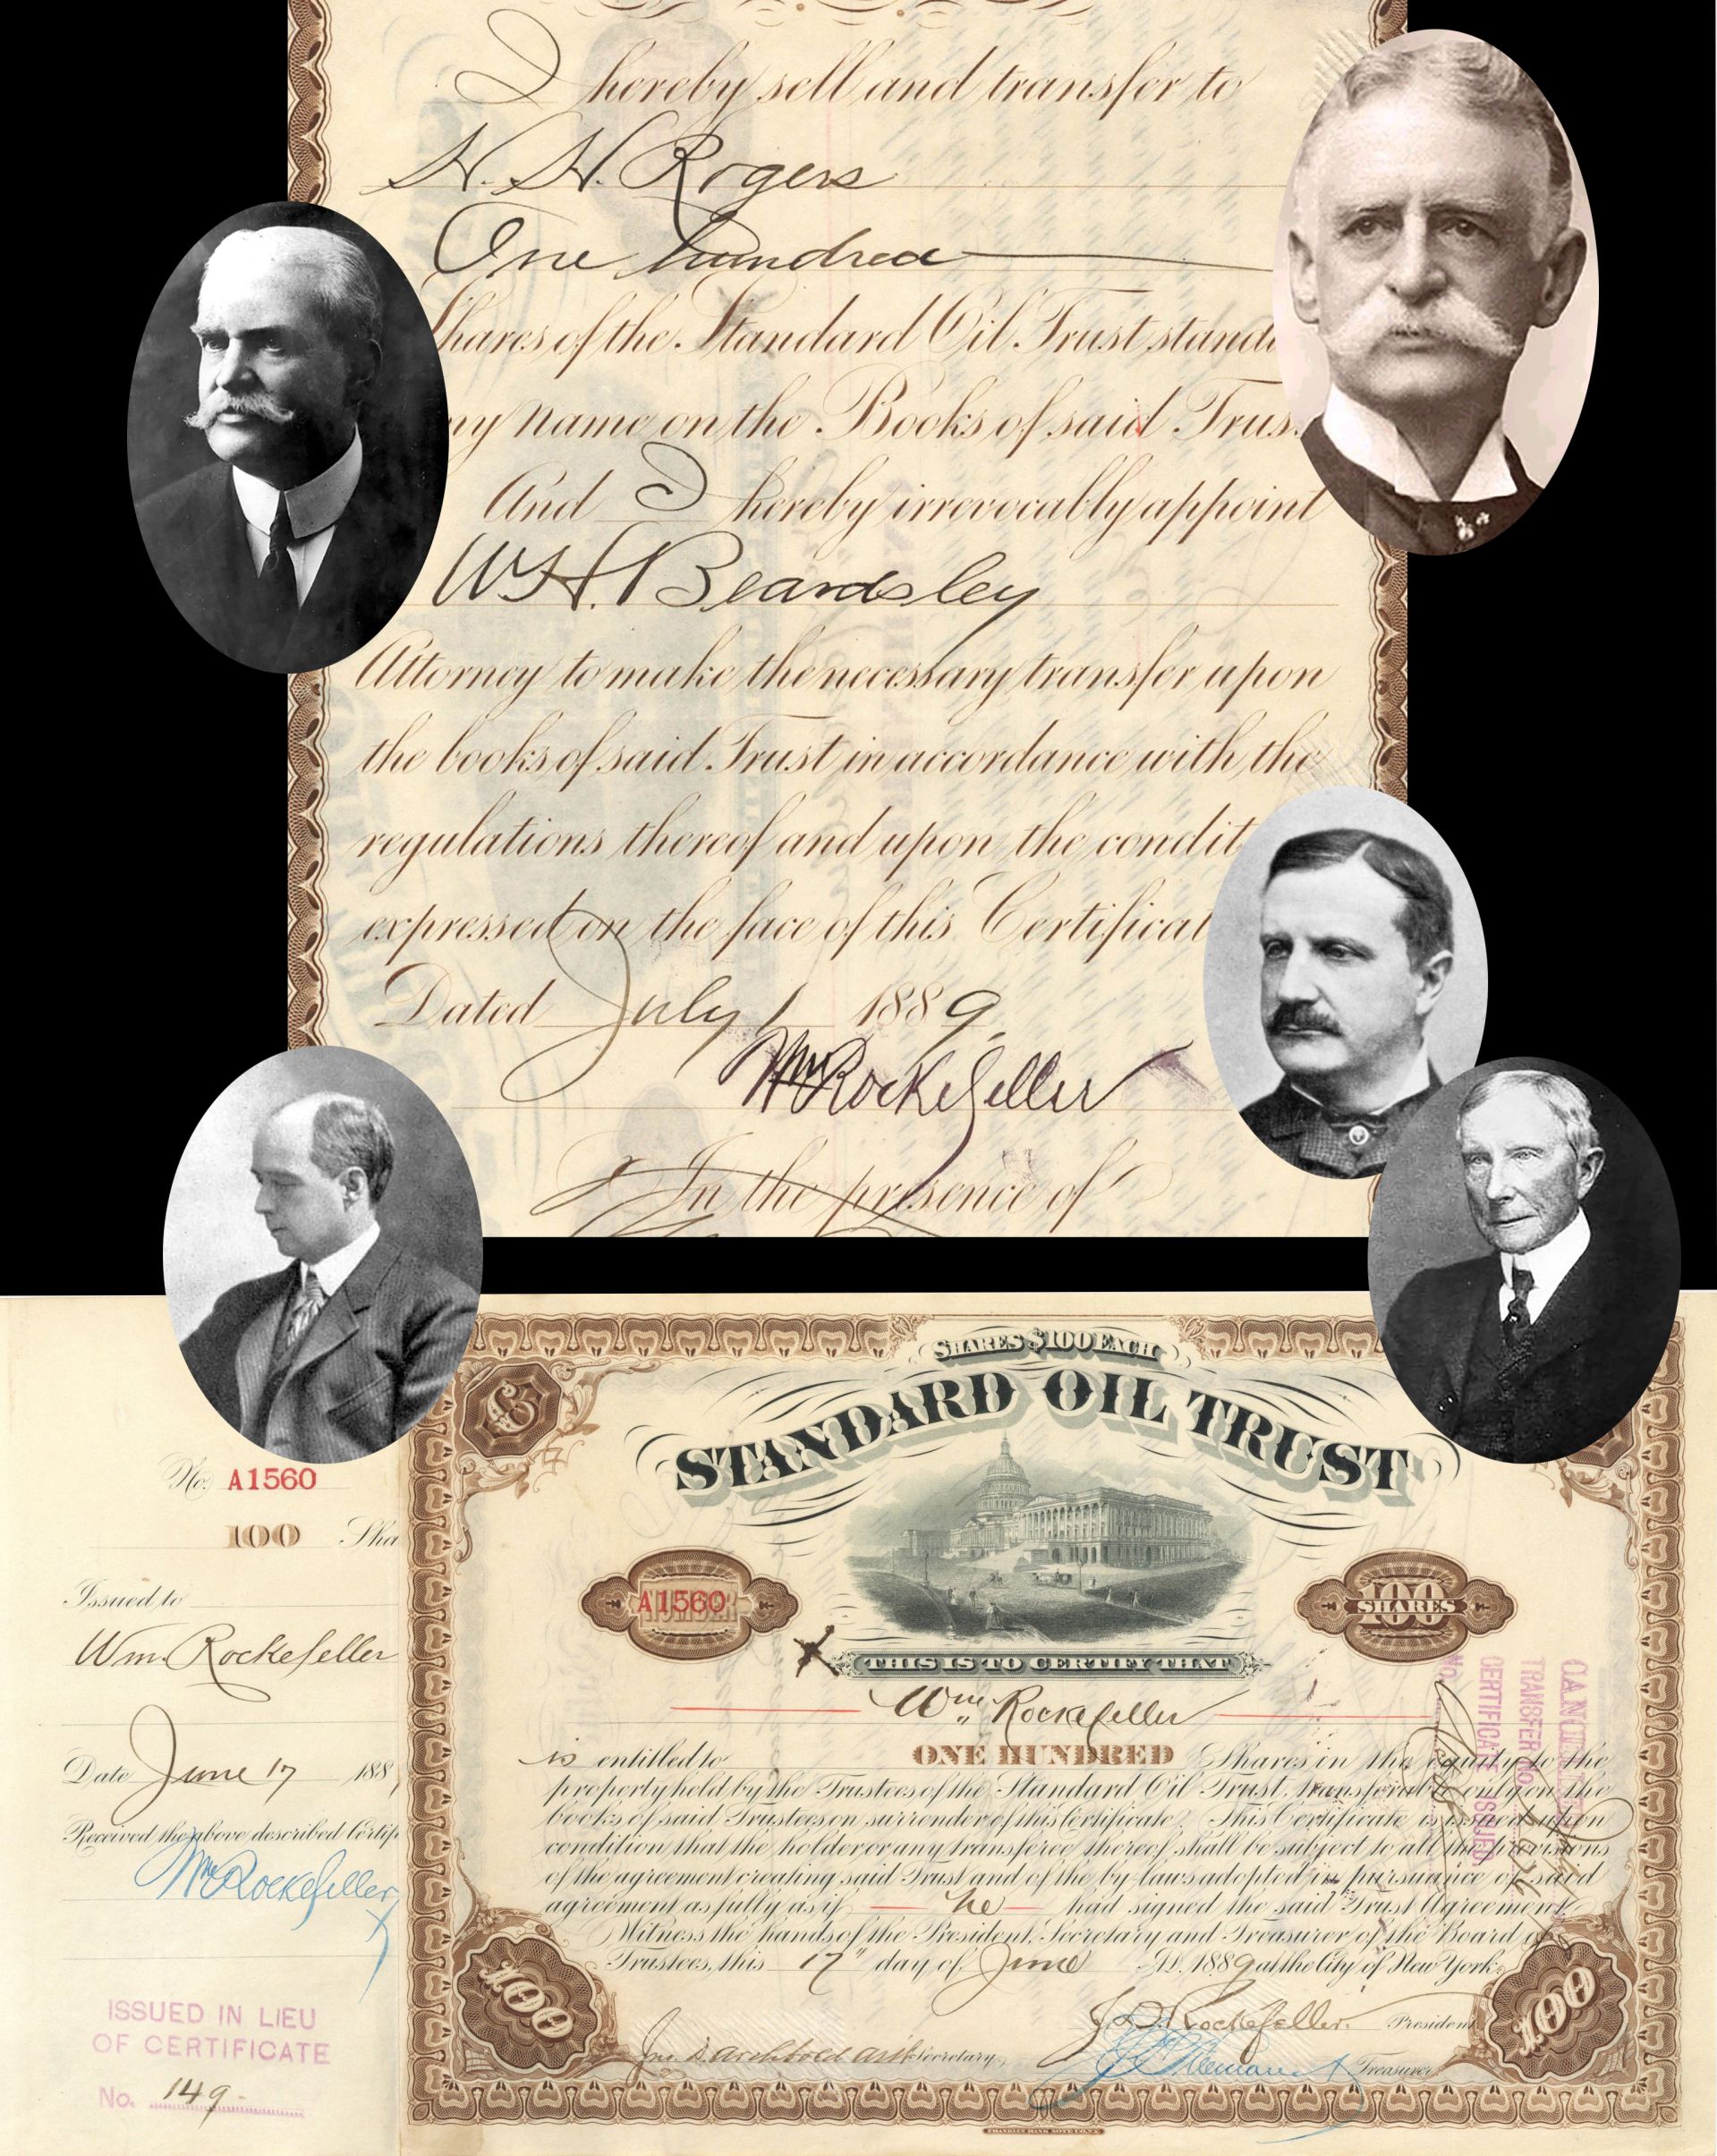 I hereby sell and transfer to
H. H. Rogers
One hundred
Shares of the Standard Oil Trust stand
my name on the Books of said Trus
And I hereby irrevocably appoint
W.H. Beardsley
Attorney to make the necessary transfer upon
the books of said Trust in accordance with the
regulations thereof and upon the condit
expressed on the face of this Certificat
Dated July 1 1889
Wm Rockefeller
In the presence of
No. A1560
100 Sha
Issued to
Wm. Rockefeller
Date June 17 188
Received the above described Certif
Wm Rockefeller
ISSUED IN LIEU
OF CERTIFICATE
No. 149
SHARES $100 EACH
STANDARD OIL TRUST
A1560
100
SHARES
THIS IS TO CERTIFY THAT
Wm. Rockefeller
is entitled to ONE HUNDRED Shares in the equity to the
property held by the Trustees of the Standard Oil Trust, transferable only on the
books of said Trustees on surrender of this Certificate. This Certificate is issued upon
condition that the holder or any transferee thereof shall be subject to all the provisions
of the agreement creating said Trust and of the by-laws adopted in pursuance of said
agreement as fully as if he had signed the said Trust Agreement.
Witness the hands of the President, Secretary and Treasurer of the Board of
Trustees, this 17" day of June A.D. 1889 at the City of New York.
Jno. D. Archbold asst Secretary.
J. D. Rockefeller. President
Treasurer
100
100
TRANSFER NO.
CERTIFICATE ISSUED
NO.
FRANKLIN BANK NOTE CO. N.Y.